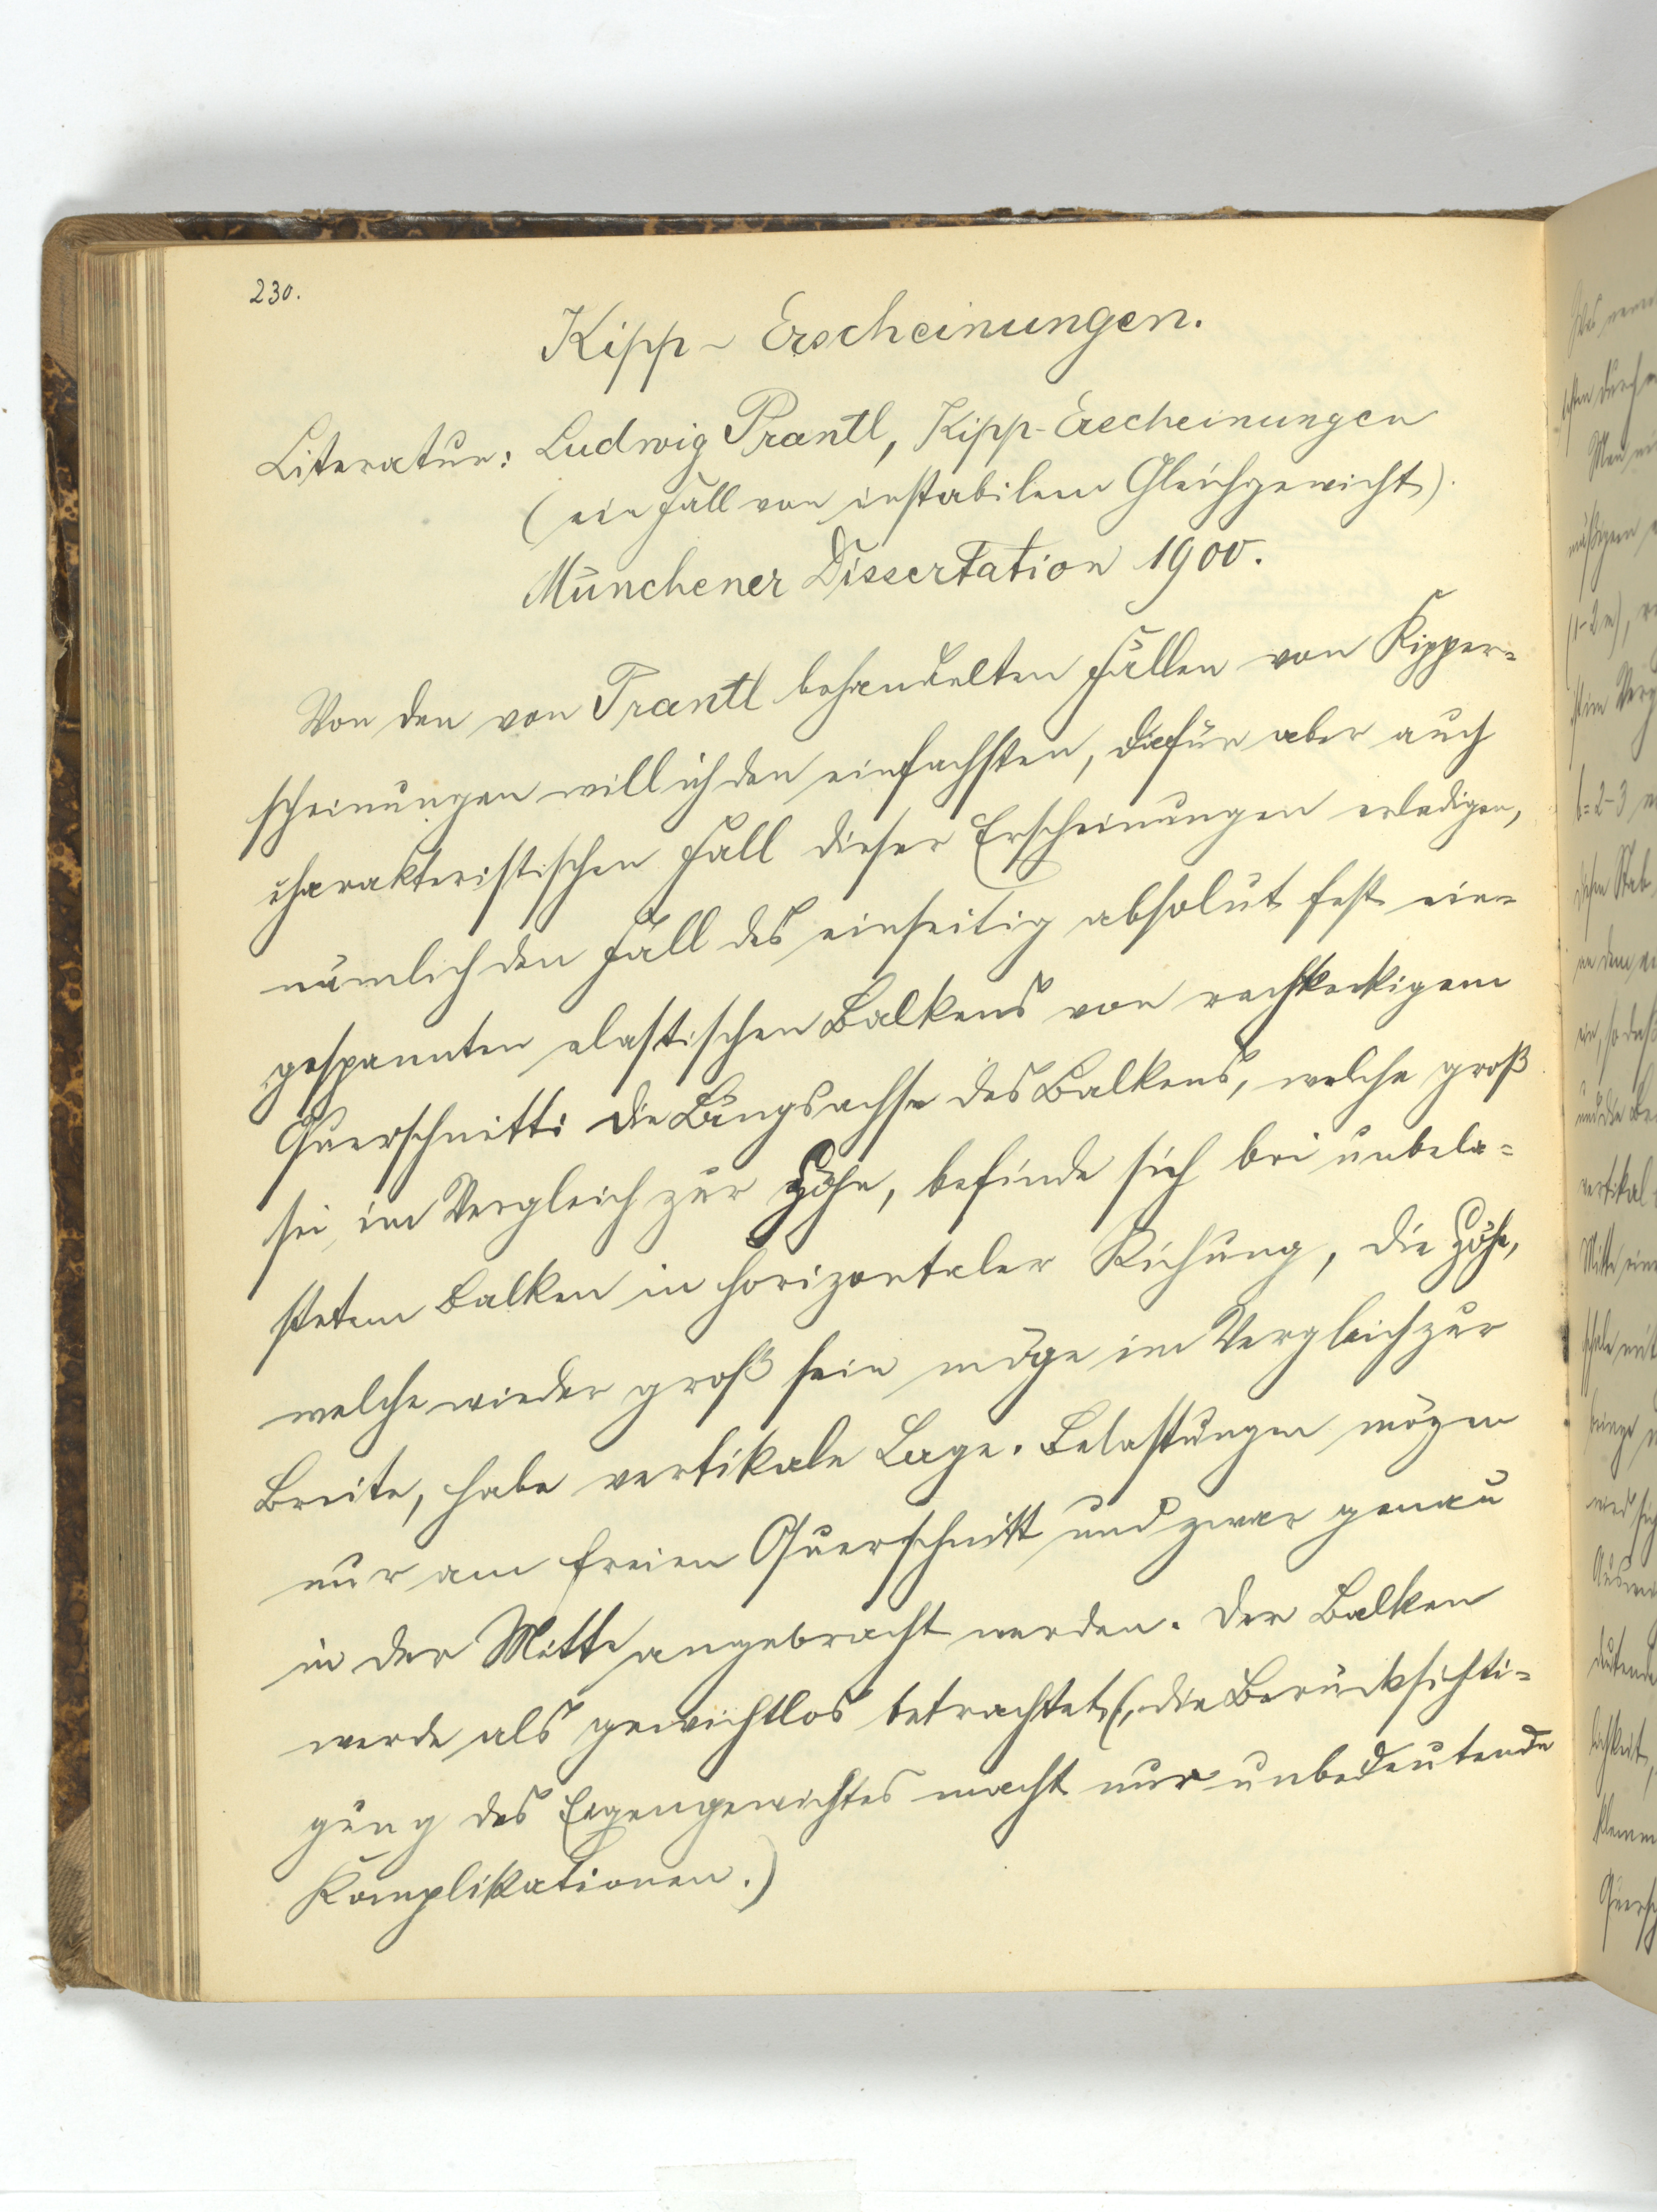 230.
Kipp-Erscheinungen.
Literatur: Ludwig Prantl, Kipp-Erscheinungen
(ein Fall von instabilem Gleichgewicht).
Münchener Dissertation 1900.
Von den von Prantl behandelten Fällen von Kipper=
scheinungen will ich den einfachsten, dafür aber auch
charakteristischen Fall dieser Erscheinungen erledigen,
nämlich den Fall des einseitig absolut fest ein=
gespannten elastischen Balkens von rechteckigem
Querschnitt: die Längsachse des Balkens, welche groß
sei im Vergleich zur Höhe, befinde sich bei unbela=
stetem Balken in horizontaler Richung, die Höhe,
welche wieder groß sein möge im Vergleich zur
Breite, habe vertikale Lage. Belastungen mögen
nur am freien Querschnitt und zwar genau
in der Mitte angebracht werden. Der Balken
werde als gewichtlos betrachtet (die Berücksichti=
gung des Eigengewichtes macht nur unbedeutende
Komplikationen.)